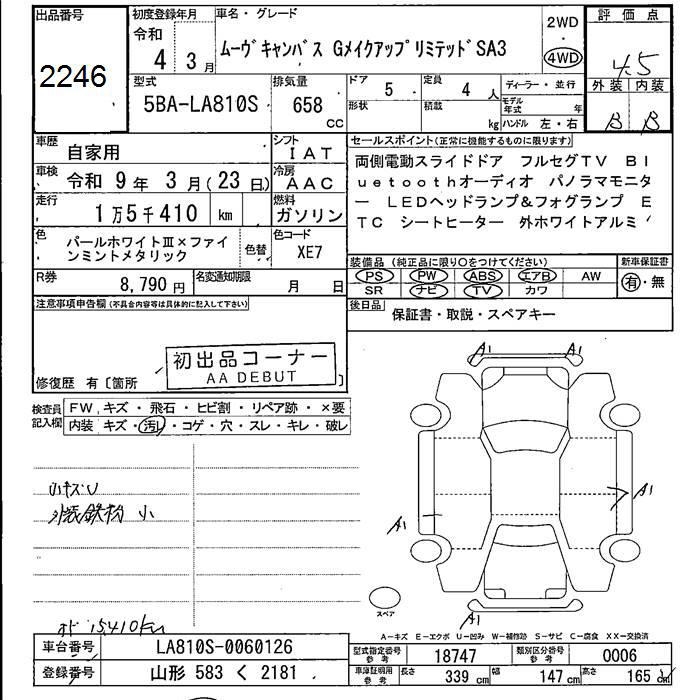 出品番号
2246
初度登録年月
令和
4 3月
車名・グレード
ムーヴキャンバス GメイクアップリミテッドSA3
2WD
・
4WD
評価点
4.5
外装 内装
B B
型式
5BA-LA810S
排気量
658
CC
ドア 5
定員 4 人
ディーラー・並行
形状
積載 kg
モデル年式 年
ハンドル 左・右
車歴 自家用
シフト IAT
車検 令和 9年 3月(23日)
冷房 AAC
走行 1万5千410 km
燃料 ガソリン
色 パールホワイトⅢ×ファインミントメタリック
色替
色コード XE7
R券 8,790円
名変通知期限 月 日
セールスポイント(正常に機能するものに限ります)
両側電動スライドドア フルセグTV Bl
uetoothオーディオ パノラマモニタ
ー LEDヘッドランプ&フォグランプ E
TC シートヒーター 外ホワイトアルミ
装備品(純正品に限り○をつけてください)
新車保証書
PS PW ABS エアB AW
SR ナビ TV カワ
有・無
後日品 保証書・取説・スペアキー
注意事項申告欄(不具合内容等は具体的に記入して下さい)
初出品コーナー
AA DEBUT
修復歴 有〔箇所 〕
検査員記入欄
FW キズ・飛石・ヒビ割・リペア跡・×要
内装 キズ・汚れ・コゲ・穴・スレ・キレ・破レ
小キズU
外装鉄粉 小
15410km
A1 A1
A1
A1
A1
スペア
A-キズ E-エクボ U-凹み W-補修跡 S-サビ C-腐食 XX-交換済
車台番号 LA810S-0060126
登録番号 山形 583 く 2181
型式指定番号 参考 18747
類別区分番号 参考 0006
車庫証明用 参考 長さ 339 cm 幅 147 cm 高さ 165 cm